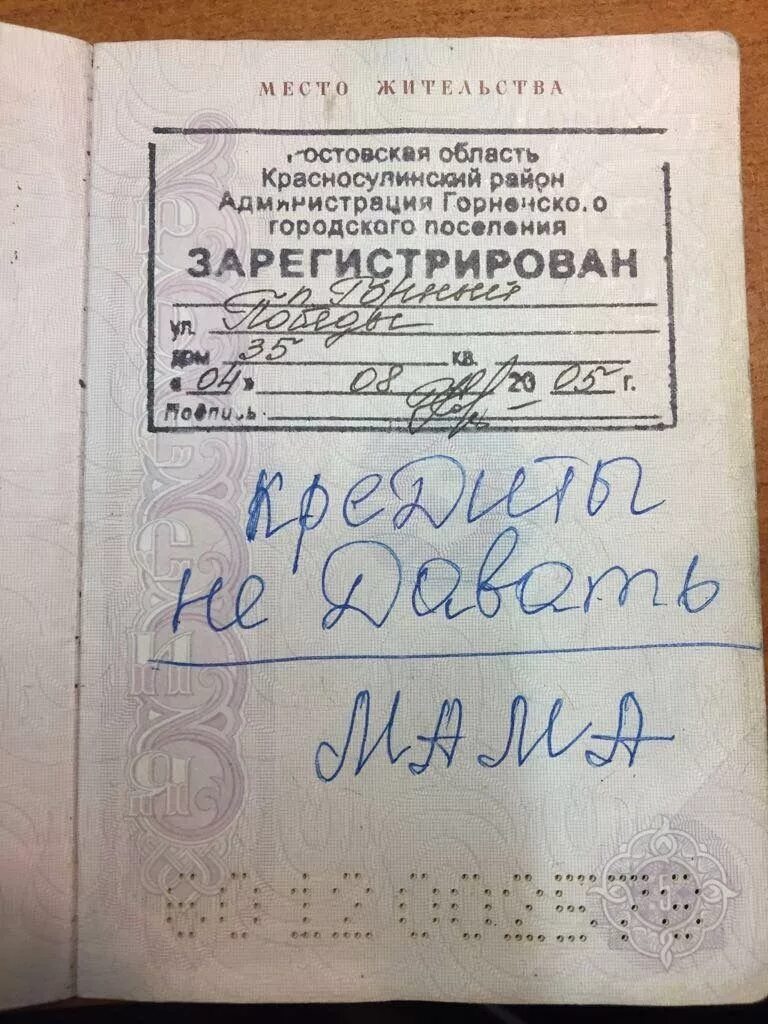 МЕСТО ЖИТЕЛЬСТВА
Ростовская область
Красносулинский район
Администрация Горненского
городского поселения
ЗАРЕГИСТРИРОВАН
п. Горный
ул. Победы
дом 35 кв.
« 04 » 08 20 05 г.
Подпись
кредиты
не давать
МАМА